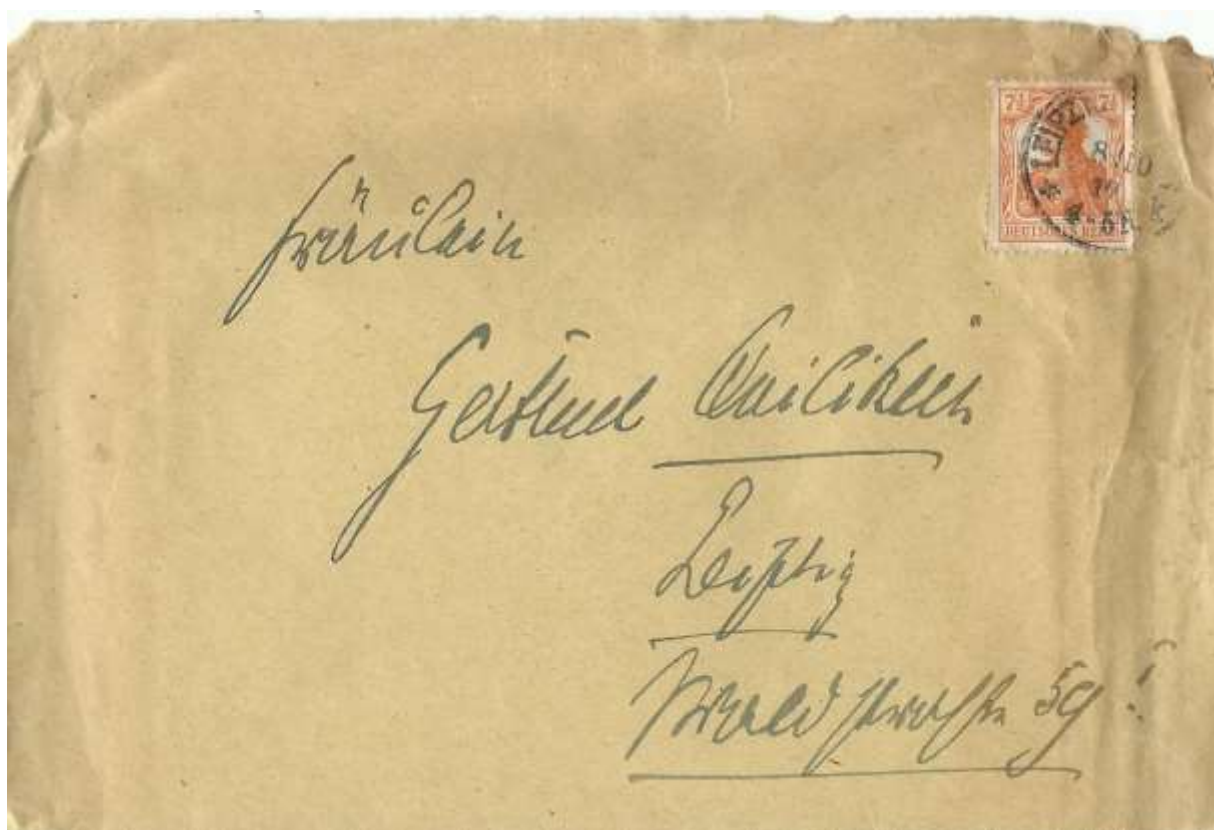 7½ 7½
LEIPZIG
DEUTSCHES REICH
Fräulein
Gertrud
Leipzig
Waldstraße 59